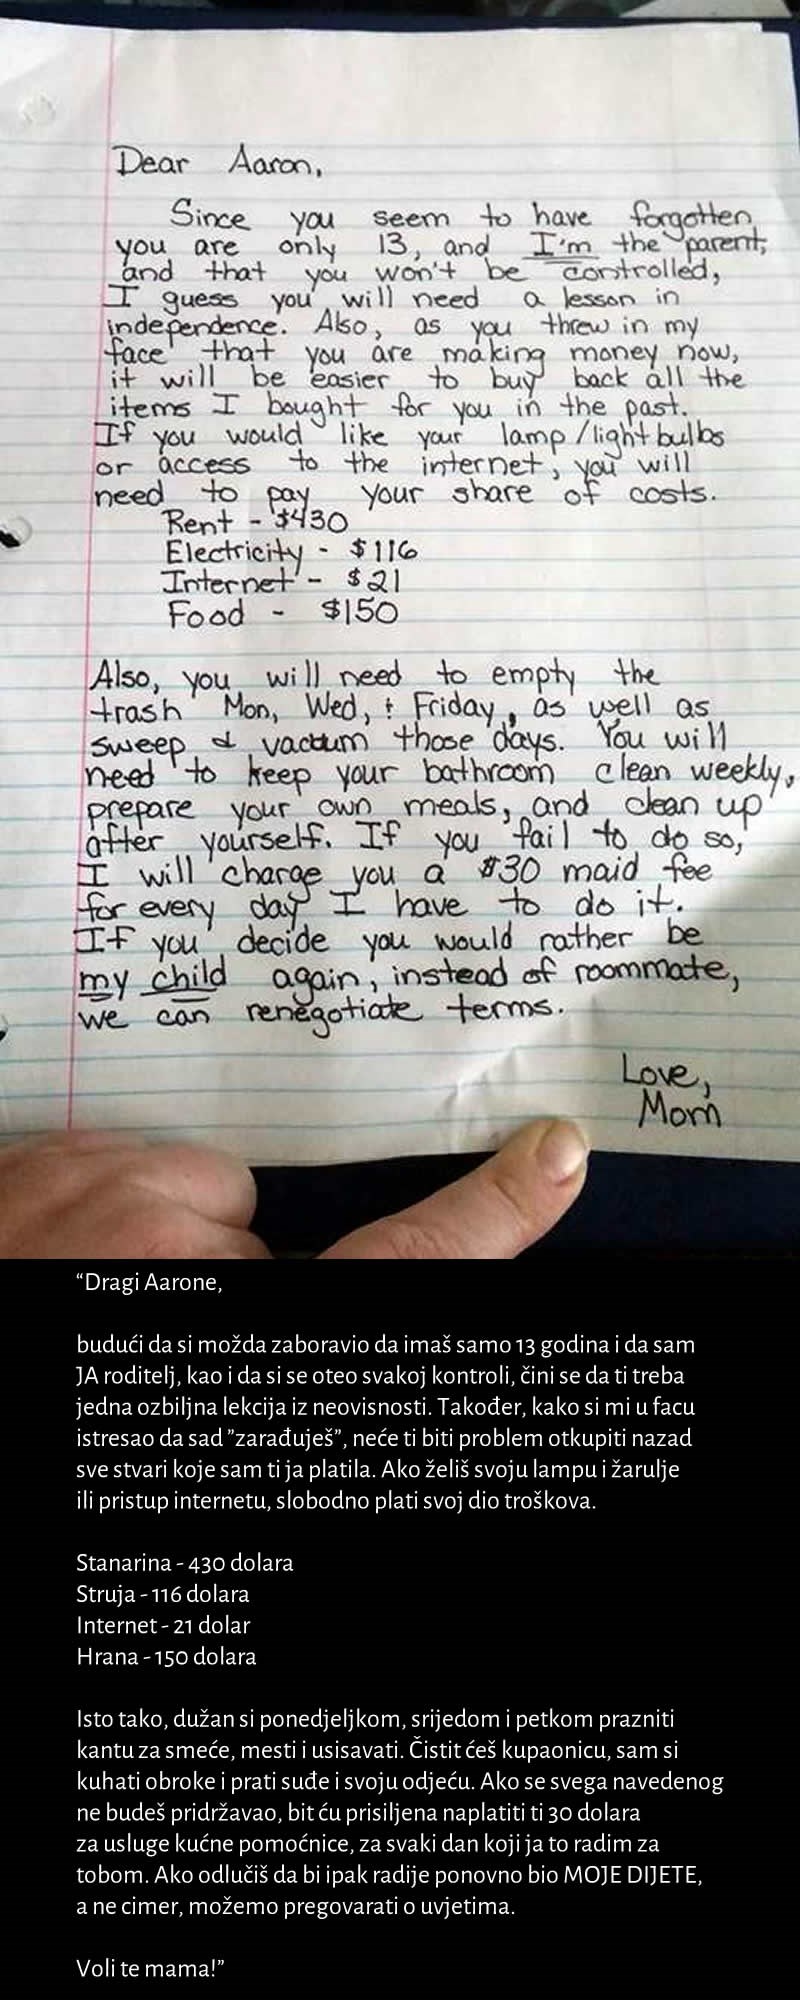 Dear Aaron,
Since you seem to have forgotten
you are only 13, and I'm the parent,
and that you won't be controlled,
I guess you will need a lesson in
independence. Also, as you threw in my
face that you are making money now,
it will be easier to buy back all the
items I bought for you in the past.
If you would like your lamp/lightbulbs
or access to the internet, you will
need to pay your share of costs.
Rent - $430
Electricity - $116
Internet - $21
Food - $150
Also, you will need to empty the
trash Mon, Wed, + Friday, as well as
sweep & vacuum those days. You will
need to keep your bathroom clean weekly,
prepare your own meals, and clean up
after yourself. If you fail to do so,
I will charge you a $30 maid fee
for every day I have to do it.
If you decide you would rather be
my child again, instead of roommate,
we can renegotiate terms.
Love,
Mom
“Dragi Aarone,
budući da si možda zaboravio da imaš samo 13 godina i da sam
JA roditelj, kao i da si se oteo svakoj kontroli, čini se da ti treba
jedna ozbiljna lekcija iz neovisnosti. Također, kako si mi u facu
istresao da sad ”zarađuješ”, neće ti biti problem otkupiti nazad
sve stvari koje sam ti ja platila. Ako želiš svoju lampu i žarulje
ili pristup internetu, slobodno plati svoj dio troškova.
Stanarina - 430 dolara
Struja - 116 dolara
Internet - 21 dolar
Hrana - 150 dolara
Isto tako, dužan si ponedjeljkom, srijedom i petkom prazniti
kantu za smeće, mesti i usisavati. Čistit ćeš kupaonicu, sam si
kuhati obroke i prati suđe i svoju odjeću. Ako se svega navedenog
ne budeš pridržavao, bit ću prisiljena naplatiti ti 30 dolara
za usluge kućne pomoćnice, za svaki dan koji ja to radim za
tobom. Ako odlučiš da bi ipak radije ponovno bio MOJE DIJETE,
a ne cimer, možemo pregovarati o uvjetima.
Voli te mama!”